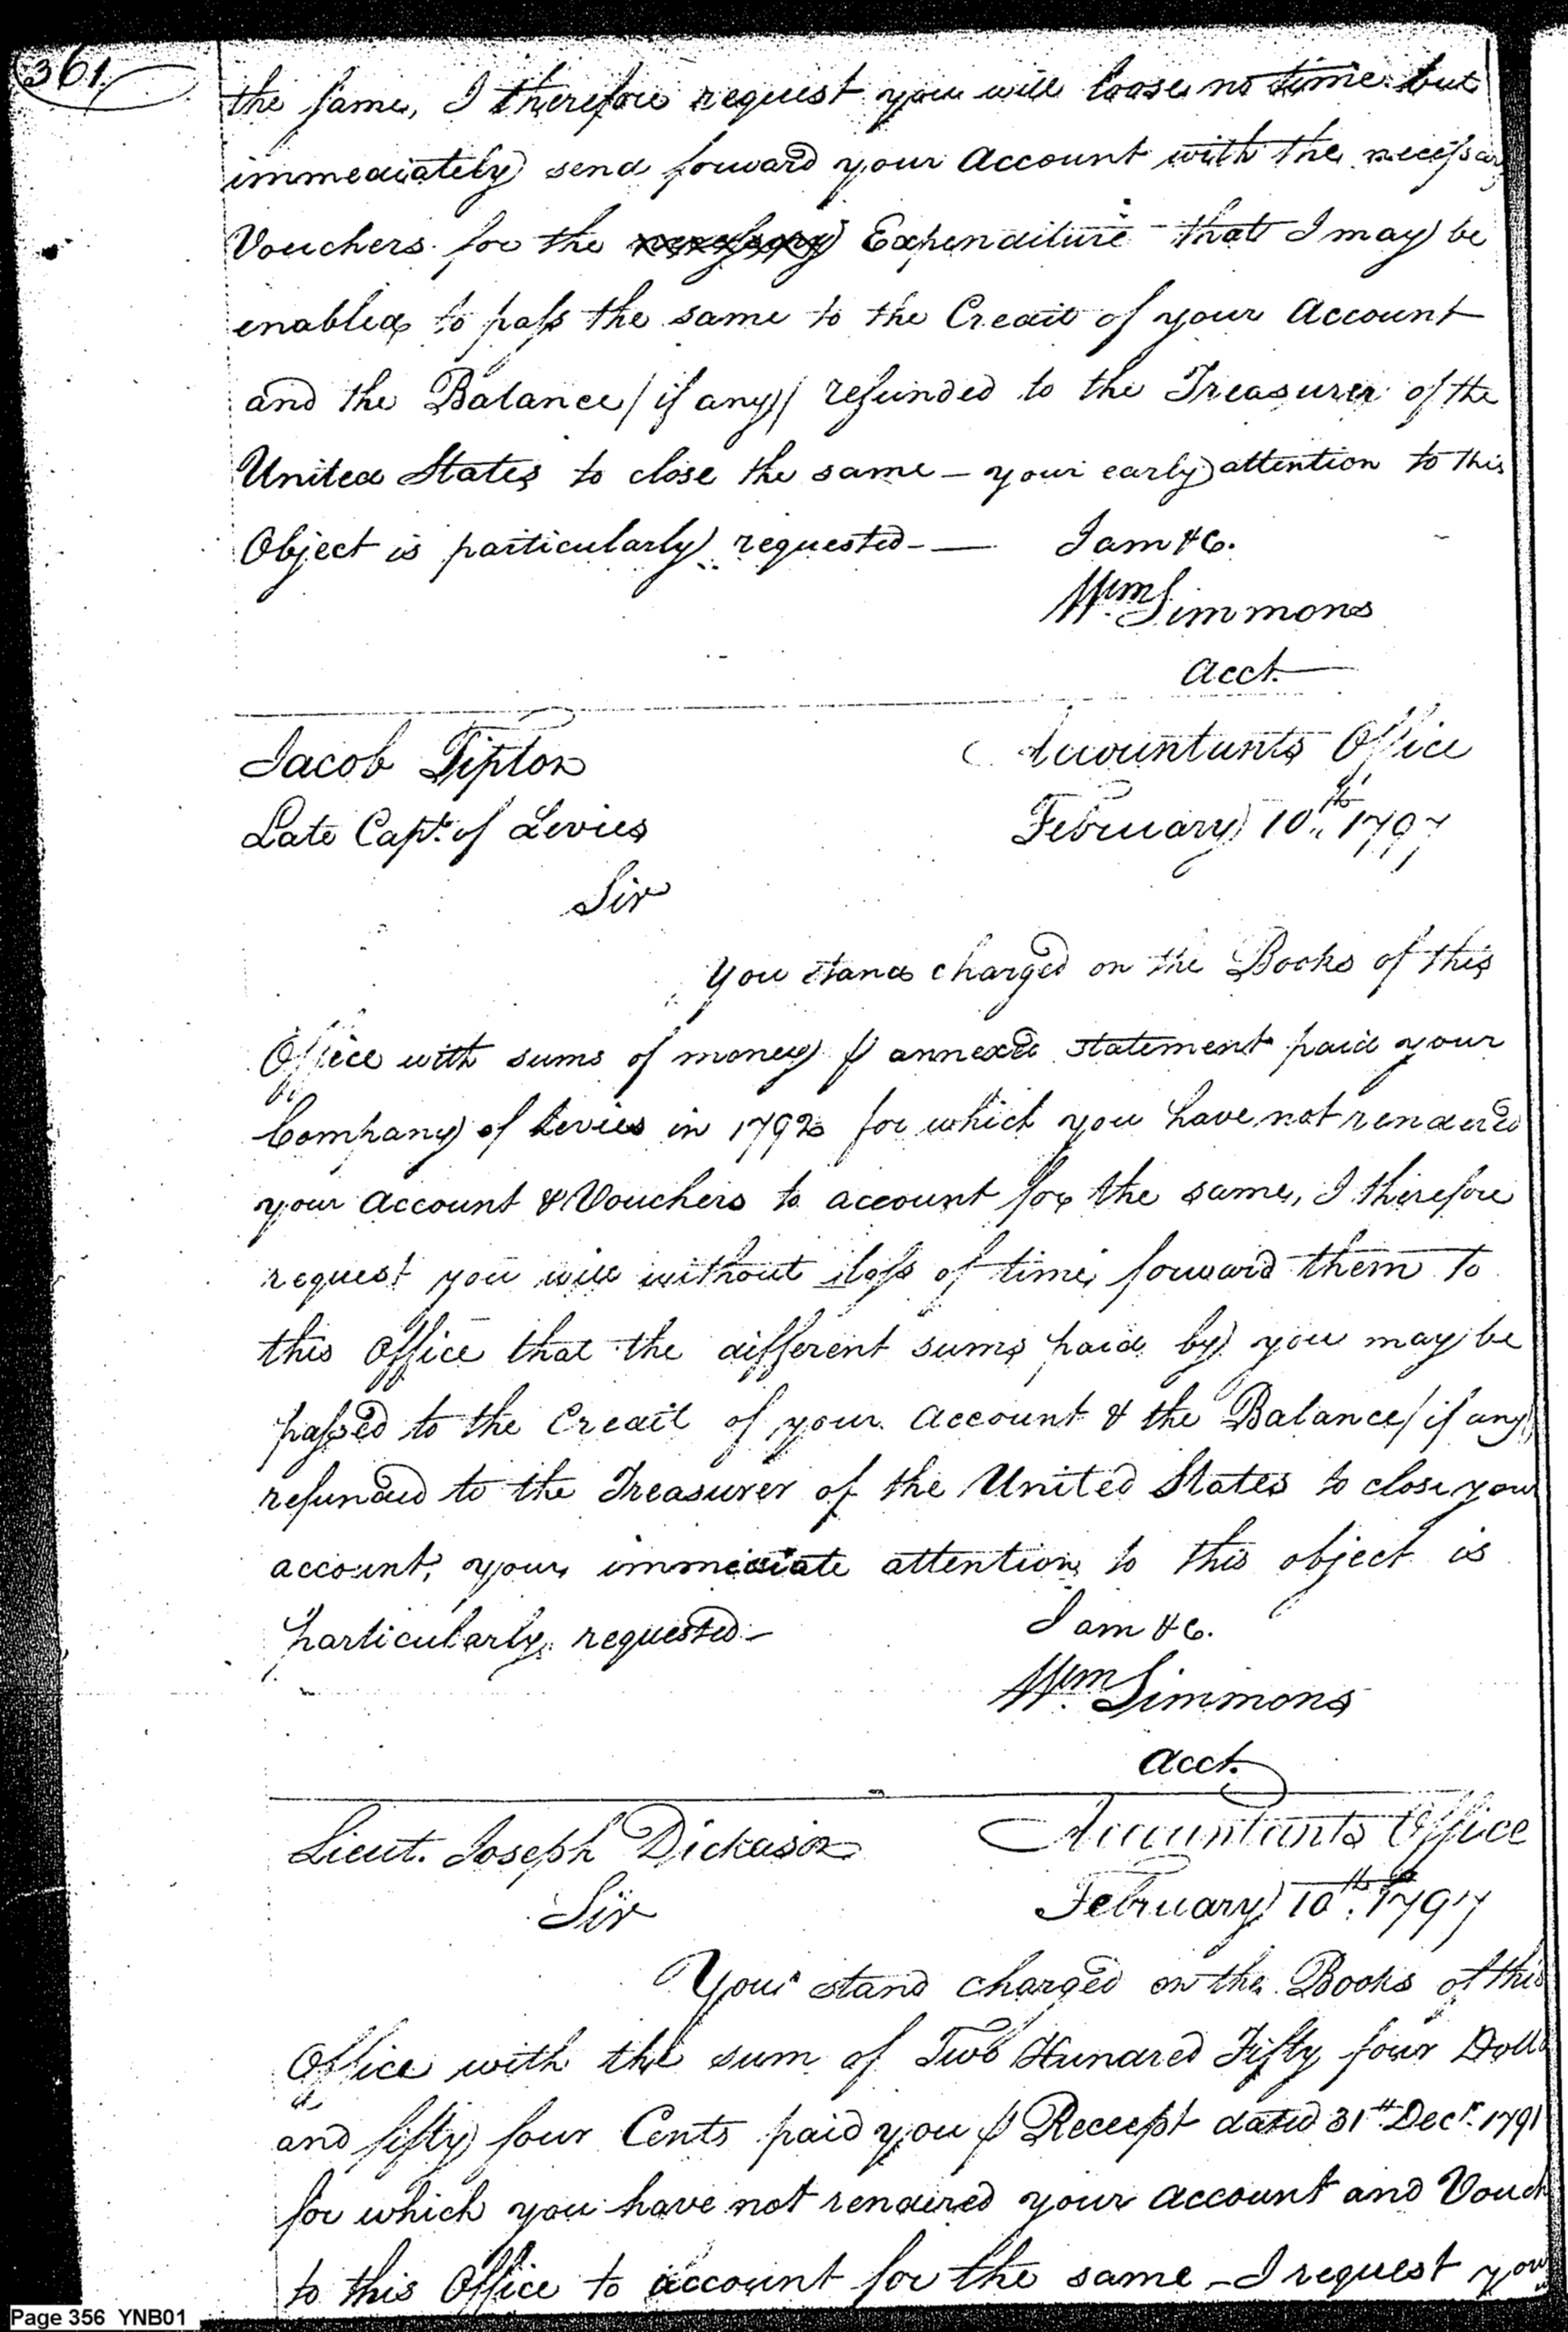 361
the same, I therefore request you will loose no time but
immediately send forward your Account with the necessary
Vouchers for the necessary Expenditure that I may be
enabled to pass the same to the Credit of your Account
and the Balance / if any / refunded to the Treasurer of the
United States to close the same — your early attention to this
Object is particularly requested — I am &c.
Wm Simmons
Acct.
Jacob Tipton Accountants Office
Late Capt. of Levies February 10th 1797
Sir
You stand charged on the Books of this
Office with sums of money ⅌ annexed statement paid your
Company of Levies in 1792 for which you have not rendered
your Account & Vouchers to account for the same, I therefore
request you will without loss of time forward them to
this Office that the different sums paid by you may be
passed to the Credit of your Account & the Balance / if any /
refunded to the Treasurer of the United States to close your
account, your immediate attention to this object is
particularly requested — I am &c.
Wm Simmons
Acct.
Lieut. Joseph Dickason Accountants Office
Sir February 10th 1797
You stand charged on the Books of this
Office with the sum of Two Hundred Fifty four Dolls
and fifty four Cents paid you ⅌ Receipt dated 31st Decr. 1791
for which you have not rendered your Account and Vouch
to this Office to account for the same — I request you
Page 356 YNB01